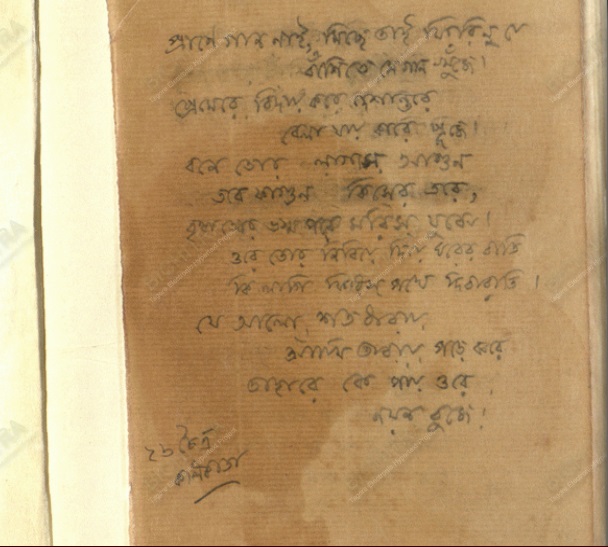 প্রাণে গান নাই, মিছে তাই ফিরিনু যে
বাঁশিতে সে গান খুঁজে।
প্রেমেরে বিদায় করে দেশান্তরে
বেলা যায় কারে পূজে।
বনে তোর লাগাস আগুন
তবে ফাগুন কিসের তরে,
বৃথা তোর ভস্ম পরে মরিস যুঝে।
ওরে তোর নিবিয়ে দিয়ে ঘরের বাতি
কি লাগি ফিরিস পথে দিবারাতি।
যে আলো শত ধারায়
আঁখি তারায় পড়ে ঝরে
তাহারে কে পায় ওরে
নয়ন বুজে।
২৬ চৈত্র
কলিকাতা